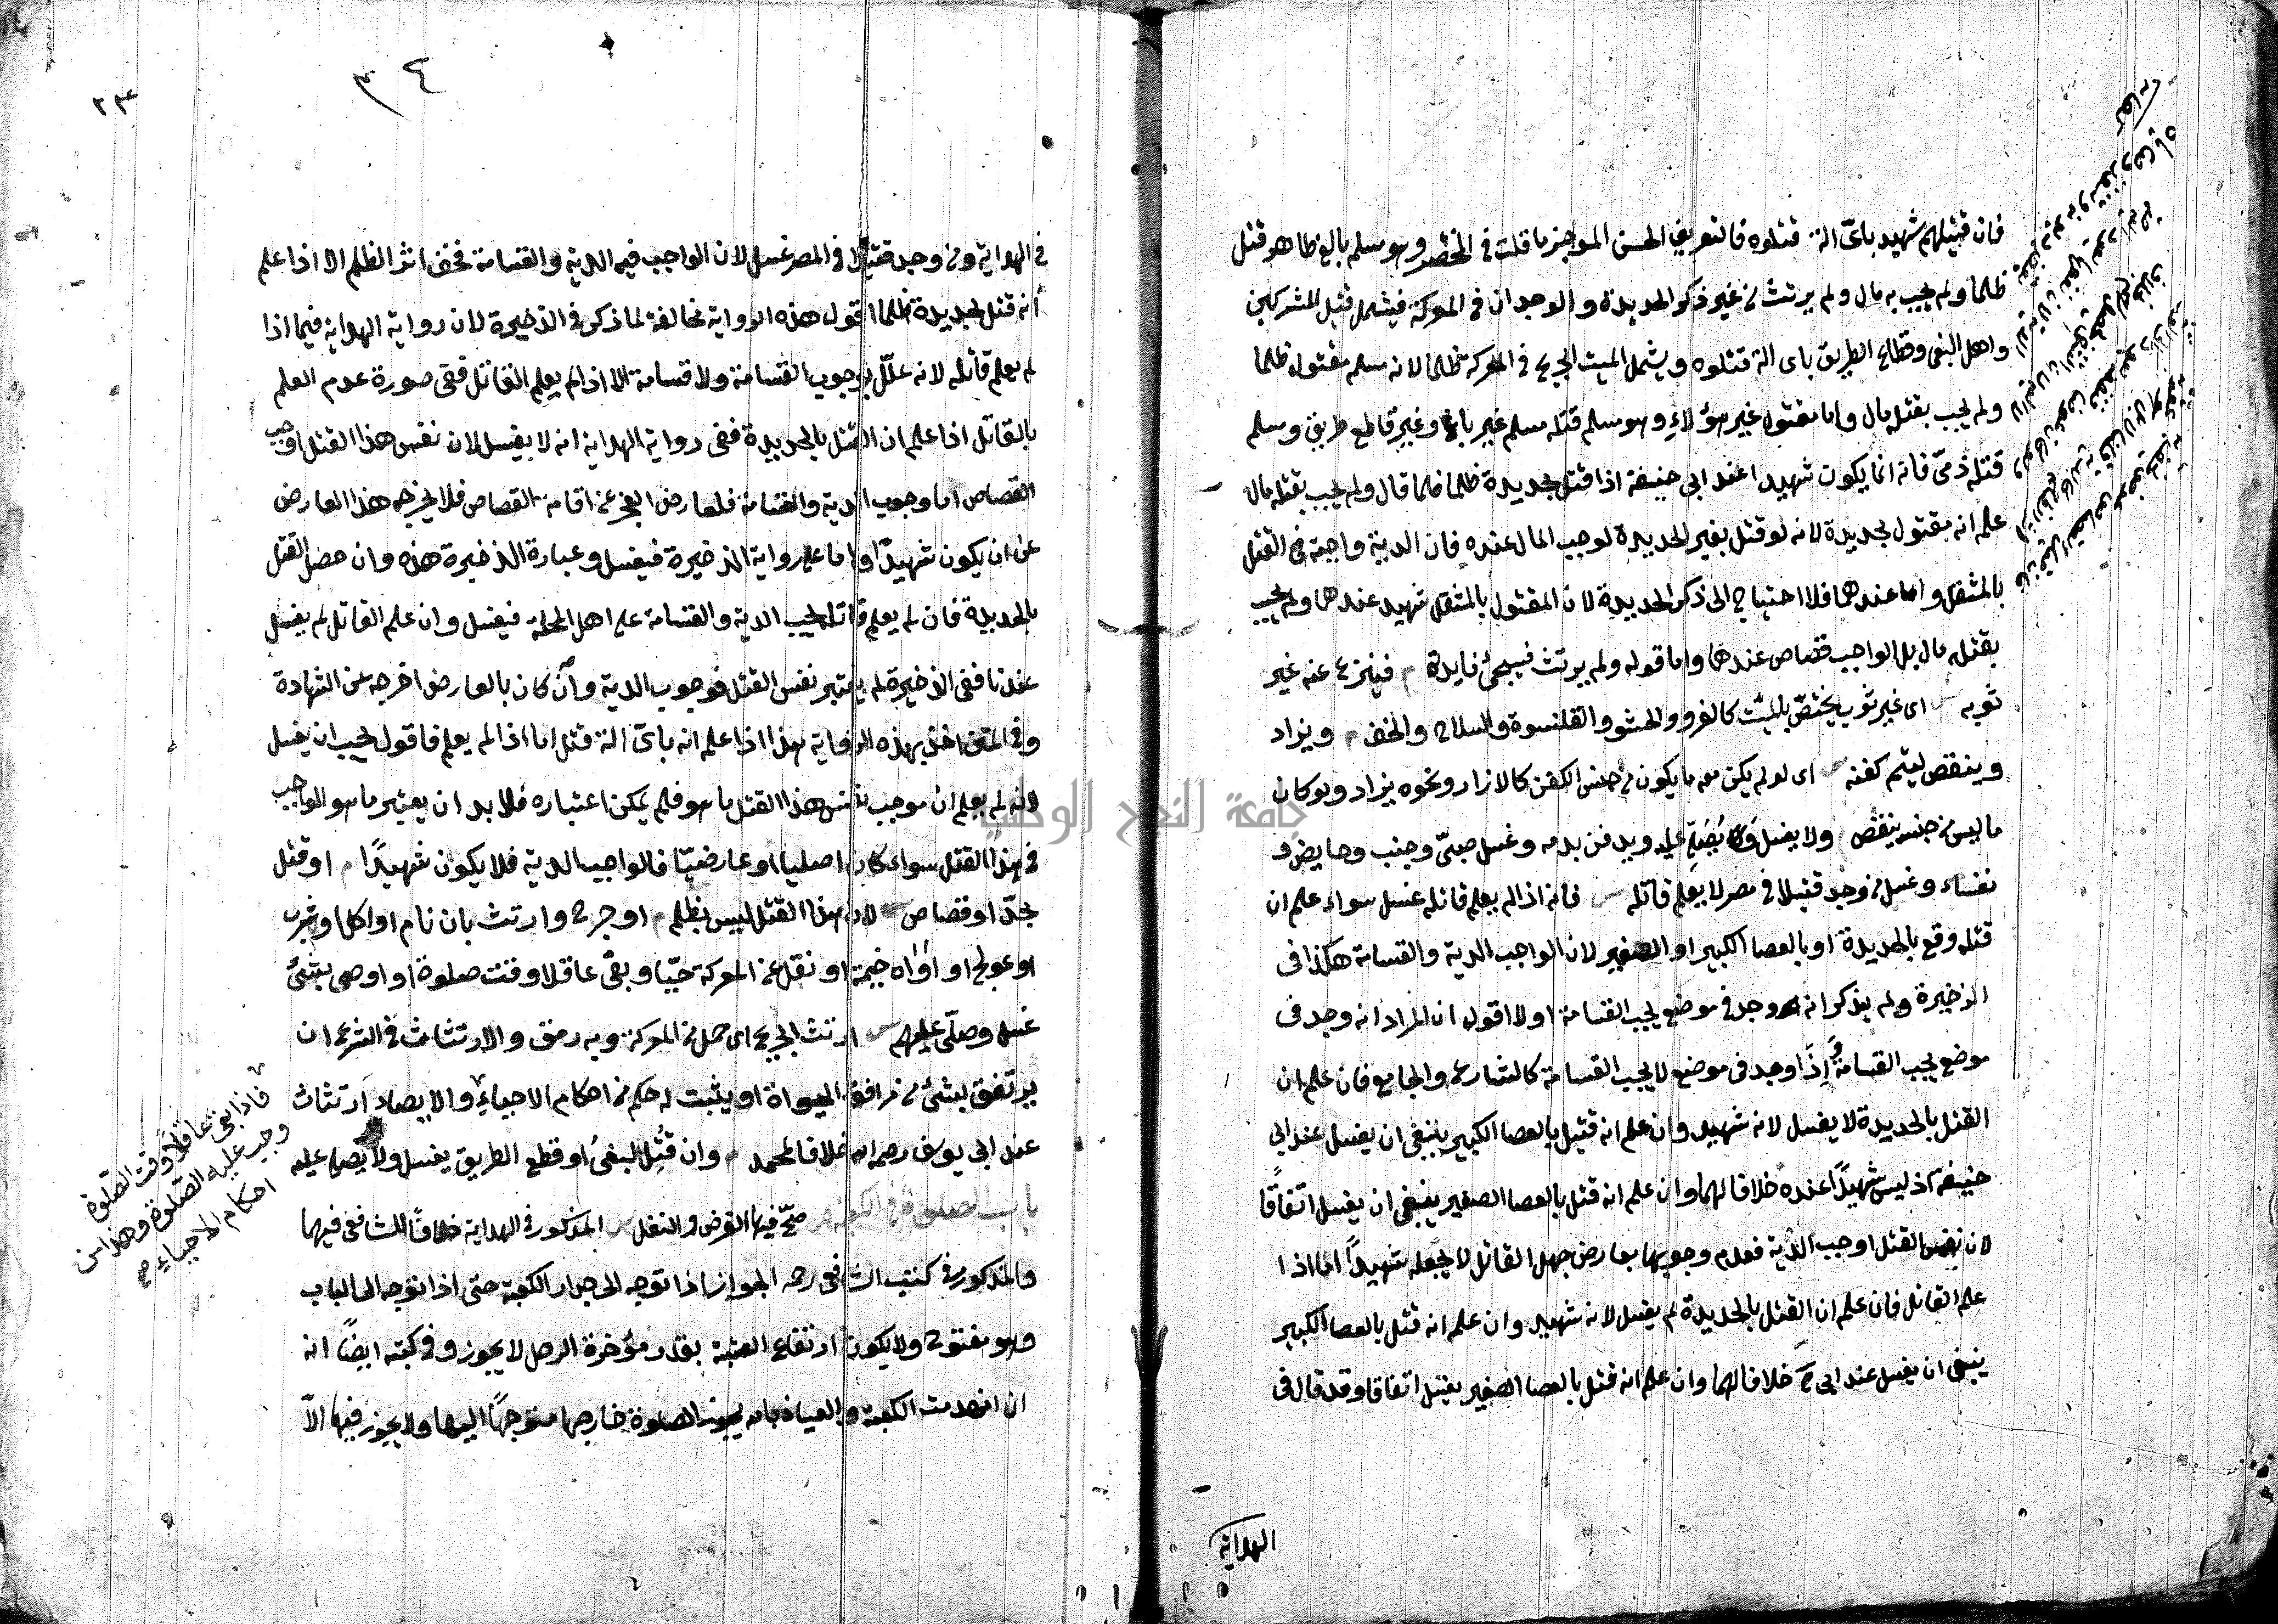 فان قتيلهم شهيد باىّ الة قتلوه فالتعريف الحسن الموجز ما قلت فى المختصر وهو مسلم بالغ طاهر قتل
ظلما ولم يجب به مال ولم يرتث من غير ذكر الحديدة والوجدان فى المعركة فيشمل قتيل المشركين
واهل البغى وقطاع الطريق باى الة قتلوه ويشمل الميت الجريح فى المعركة ظلما لانه مسلم مقتول ظلما
ولم يجب بقتله مال واما مقتول غير هؤلاء وهو مسلم قتله مسلم غير باغ وغير قاطع طريق ومسلم
قتله ذمىّ فانه انما يكون شهيدا عند ابى حنيفة اذا قتل بحديدة ظلما فلما قال ولم يجب بقتله مال
علم انه مقتول بحديدة لانه لو قتل بغير الحديدة لوجب المال عنده فان الدية واجبة فى القتل
بالمثقل واما عندهما فلا احتياج الى ذكر الحديدة لان المقتول بالمثقل شهيد عندهما ولم يجب
بقتله مال بل الواجب قصاص عندهما واما قوله ولم يرتث فسيجئ فايدته م فينزع عنه غير
ثوبه س اى غير ثوب يختصّ بالميّت كالفرو والحشو والقلنسوة والسلاح والخف م ويزاد
وينقص ليتم كفنه س اى لو لم يكن معه ما يكون من جنس الكفن كالازار ونحوه يزاد ولو كان
ما ليس من جنسه ينقص م ولا يغسل وَيُصَلّى عليه ويدفن بدمه وغسل صبىّ وجنب وحايض و
نفساء وغسل من وجد قتيلا فى مصر لا يعلم قاتله س فانه اذا لم يعلم قاتله غسل سواء علم ان
قتله وقع بالحديدة او بالعصا الكبير او الصغير لان الواجب الدية والقسامة هكذا فى
الذخيرة ولم يذكر انه وجد فى موضع يجب القسامة او لا اقول ان المراد انه وجد فى
موضع يجب القسامة اِذَا وجد فى موضع لا يجب القسامة كالشارع والجامع فان علم ان
القتل بالحديدة لا يغسل لانه شهيد وان علم انه قتيل بالعصا الكبير ينبغى ان يغسل عند ابى
حنيفة اذ ليس شهيدًا عنده خلافا لهما وان علم انه قتل بالعصا الصغير ينبغى ان يغسل اتفاقًا
لان نفس القتل اوجب الدية فعدم وجوبها بعارض جهل القاتل لا يجعله شهيدًا اما اذا
علم القاتل فان علم ان القتل بالحديدة لم يغسل لانه شهيد وان علم انه قتل بالعصا الكبير
ينبغى ان يغسل عند ابى ح خلافا لهما وان علم انه قتل بالعصا الصغير يغسل اتفاقا وقد قال فى
الهداية
٢٣
فى الهداية ومن وجد قتيلا فى المصر غسل لان الواجب فيه الدية والقسامة فخف اثر الظلم الا اذا علم
انه قتل بحديدة ظلما اقول هذه الرواية مخالفة لما ذكر فى الذخيرة لان رواية الهداية فيما اذا
لم يعلم قاتله لانه علّل بوجوب القسامة ولا قسامة الا اذا لم يعلم القاتل ففى صورة عدم العلم
بالقاتل اذا علم ان القتل بالحديدة ففى رواية الهداية انه لا يغسل لان نفس هذا القتل اوجب
القصاص اما وجوب الدية والقسامة فلعارض العجز عن اقامة القصاص فلا يخرجه هذا العارض
عن ان يكون شهيدًا واما على رواية الذخيرة فيغسل وعبارة الذخيرة هذه وان حصل القتل
بالحديدة فان لم يعلم قاتله يجب الدية والقسامة على اهل المحلة فيغسل وان علم القاتل لم يغسل
عندنا ففى الذخيرة لم يعتبر نفس القتل فوجوب الدية وان كان بالعارض اخرجه عن الشهادة
وفى المتن اخذ بهذه الرواية هذا اذا علم انه باىّ الة قتل اما اذا لم يعلم فاقول يجب ان يغسل
لانه لم يعلم ان موجب نفس هذا القتل ما هو فلم يمكن اعتباره فلا بد ان يعتبر ما هو الواجب
فى هذا القتل سواء كان اصليا او عارضيّا فالواجب الدية فلا يكون شهيدًا م او قتل
بحدّ او قصاص س لان هذا القتل ليس بظلم م او جرح وارتث بان نام او اكل او شرب
او عولج او اواه خيمة او نقل عن المعركة حيّا وبقى عاقلا وقت صلوة او اوصى بشئ
غسل وصلّى عليهم س ارتث الجريح اى حمل من المعركة وبه رمق والارتثاث فى الشرع ان
يرتفق بشئ من مرافق الحيواة او يثبت له حكم من احكام الاحياء والايصاء ارتثاث
عند ابى يوسف رحمه الله خلافا لمحمد م وان قُتِل لبغى او قطع الطريق يغسل ولا يصلى عليه
باب الصلوة فى الكعبة م صحّ فيها الفرض والنفل س المذكور فى الهداية خلافًا للشافعى فيهما
والمذكور فى كتب الشافعى رحمه الجواز اذا توجه الى جدار الكعبة حتى اذا توجه الى الباب
وهو مفتوح ولا يكون ارتفاع العتبة بقدر مؤخرة الرحل لا يجوز وفى كتبه ايضًا انه
ان انهدمت الكعبة والعياذ بالله يجوز الصلوة خارجها متوجهًا اليها ولا يجوز فيها الّا
فاذا بقى عاقلًا وقت الصلوة
وجب عليه الصلوة وهذا من
احكام الاحياء صح
جامعة النجاح الوطنية